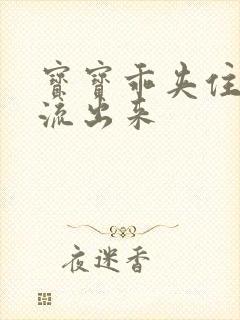 寶寶乖夹住
流出来
夜迷香